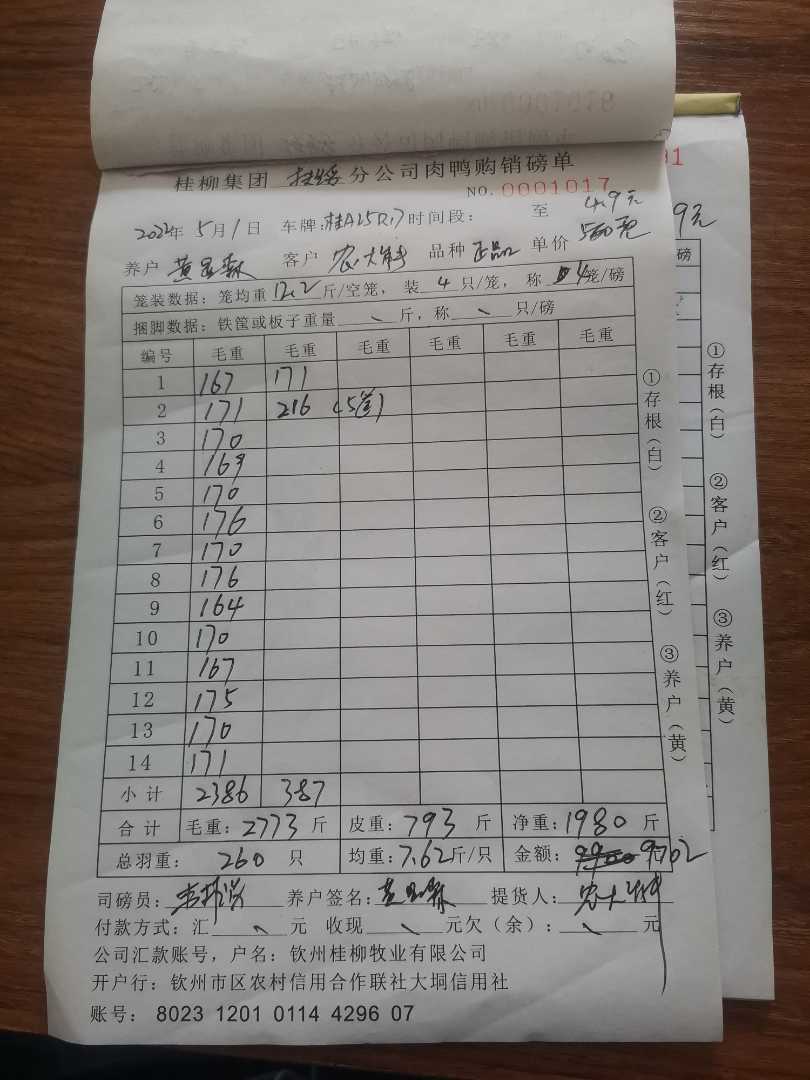 桂柳集团 扶绥 分公司肉鸭购销磅单
NO. 0001017
4.9元
2022年 5月1日 车牌: 桂A25R17 时间段: 至
养户 黄呈森 客户 农大科 品种 正品 单价
笼装数据: 笼均重 12.2 斤/空笼, 装 4 只/笼, 称 4 笼/磅
捆脚数据: 铁筐或板子重量 斤, 称 只/磅
编号 毛重 毛重 毛重 毛重 毛重 毛重
1 167 171
2 171 216 (5笼)
3 170
4 169
5 170
6 176
7 170
8 176
9 164
10 170
11 167
12 175
13 170
14 171
小计 2386 387
合计 毛重: 2773 斤 皮重: 793 斤 净重: 1980 斤
总羽重: 260 只 均重: 7.62 斤/只 金额: 9702
司磅员: 养户签名: 黄呈森 提货人:
付款方式: 汇 元 收现 元欠(余): 元
公司汇款账号, 户名: 钦州桂柳牧业有限公司
开户行: 钦州市区农村信用合作联社大垌信用社
账号: 8023 1201 0114 4296 07
①存根(白) ②客户(红) ③养户(黄)
91
9元
磅
①存根(白) ②客户(红) ③养户(黄)